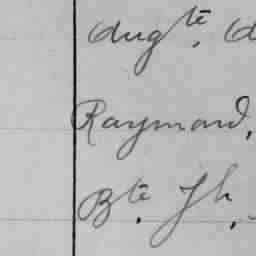 Augte, 
Raymond,
Bte. Jh.